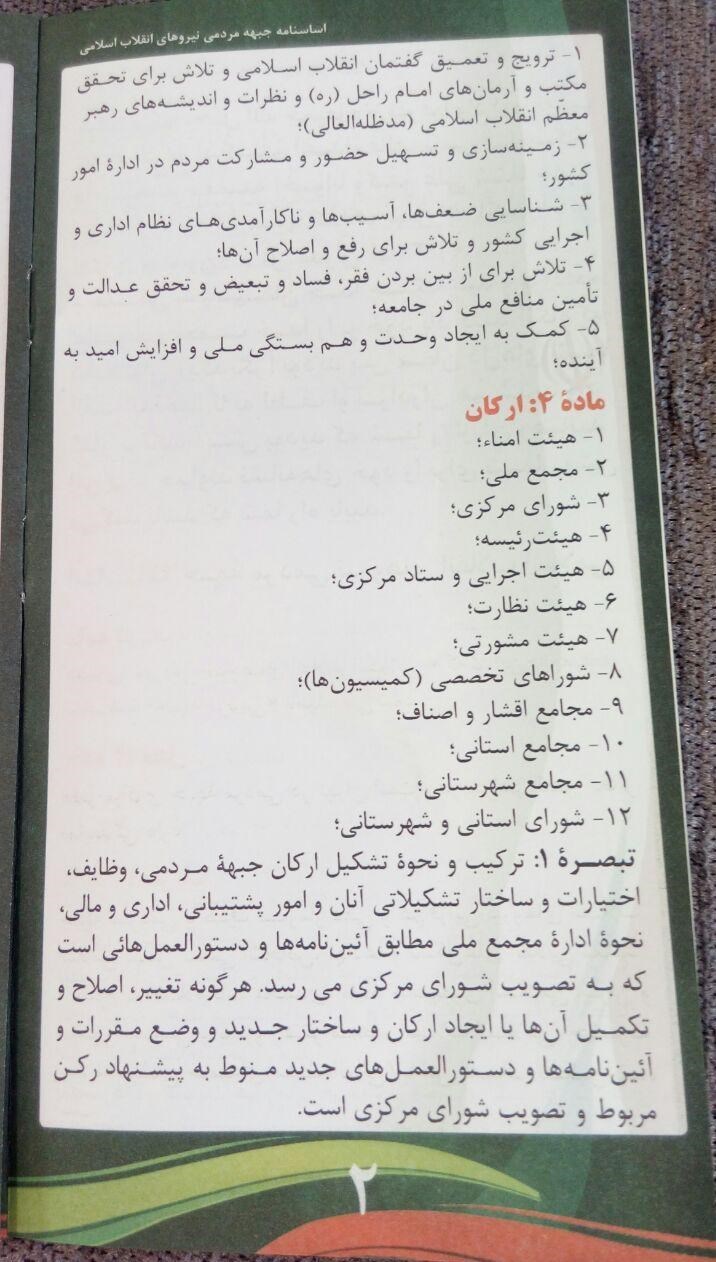 اساسنامه جبهه مردمی نیروهای انقلاب اسلامی
۱- ترویج و تعمیق گفتمان انقلاب اسلامی و تلاش برای تحقق
مکتب و آرمان‌های امام راحل (ره) و نظرات و اندیشه‌های رهبر
معظّم انقلاب اسلامی (مدظله‌العالی)؛
۲- زمینه‌سازی و تسهیل حضور و مشارکت مردم در ادارهٔ امور
کشور؛
۳- شناسایی ضعف‌ها، آسیب‌ها و ناکارآمدی‌های نظام اداری و
اجرایی کشور و تلاش برای رفع و اصلاح آن‌ها؛
۴- تلاش برای از بین بردن فقر، فساد و تبعیض و تحقق عدالت و
تأمین منافع ملی در جامعه؛
۵- کمک به ایجاد وحدت و هم بستگی ملی و افزایش امید به
آینده؛
مادهٔ ۴: ارکان
۱- هیئت امناء؛
۲- مجمع ملی؛
۳- شورای مرکزی؛
۴- هیئت‌رئیسه؛
۵- هیئت اجرایی و ستاد مرکزی؛
۶- هیئت نظارت؛
۷- هیئت مشورتی؛
۸- شوراهای تخصصی (کمیسیون‌ها)؛
۹- مجامع اقشار و اصناف؛
۱۰- مجامع استانی؛
۱۱- مجامع شهرستانی؛
۱۲- شورای استانی و شهرستانی؛
تبصرهٔ ۱: ترکیب و نحوهٔ تشکیل ارکان جبههٔ مردمی، وظایف،
اختیارات و ساختار تشکیلاتی آنان و امور پشتیبانی، اداری و مالی،
نحوهٔ ادارهٔ مجمع ملی مطابق آئین‌نامه‌ها و دستورالعمل‌هائی است
که به تصویب شورای مرکزی می رسد. هرگونه تغییر، اصلاح و
تکمیل آن‌ها یا ایجاد ارکان و ساختار جدید و وضع مقررات و
آئین‌نامه‌ها و دستورالعمل‌های جدید منوط به پیشنهاد رکن
مربوط و تصویب شورای مرکزی است.
۲